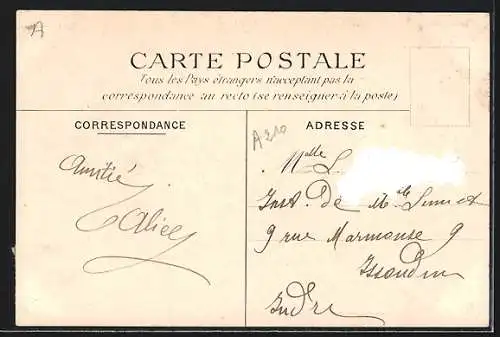 A
CARTE POSTALE
Tous les Pays étrangers n'acceptant pas la
correspondance au recto (se renseigner à la poste)
CORRESPONDANCE
ADRESSE
A210
Amitié
Alice
Melle L
Inst. de Melle
9 rue Marmouse 9
Issoudun
Indre